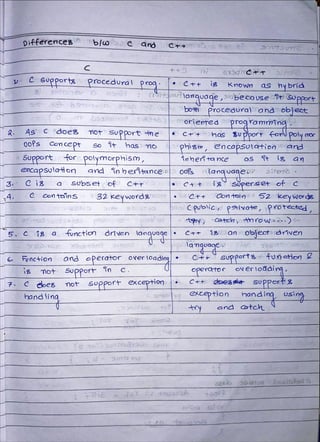 Differences b/w C and C++
C
C++
1. C supports procedural prog.
• C++ is known as hybrid
language, because it support
both procedural and object
oriented programming.
2. As C does not support the
• C++ has support for polymor
OOPs concept so it has no
phism, encapsulation and
support for polymorphism,
inheritance as it is an
encapsulation and inheritance
OOPs language.
3. C is a subset of C++
• C++ is superset of C
4. C contains 32 keywords
• C++ contain 52 keywords
(public, private, protected,
try, catch, throw....)
5. C is a function driven language
• C++ is an object driven
language.
6 Function and operator overloading
• C++ supports function &
is not support in C.
operator overloading.
7. C does not support exception
• C++ supports
handling
exception handling using
try and catch